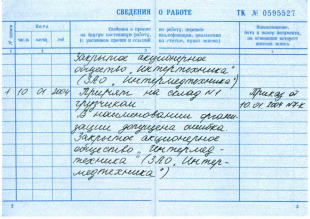 СВЕДЕНИЯ О РАБОТЕ ТК № 0595527
№ записи Дата Сведения о приеме на работу, переводе
на другую постоянную работу, квалификации, увольнении
(с указанием причин и ссылкой на статью, пункт закона)
Наименование, дата и номер документа, на основании которого внесена запись
число месяц год
1 2 3 4
Закрытое акционерное
общество „Интертехника"
(ЗАО „Интермедтехника")
1 10 01 2004 Принят на склад №1 Приказ от
грузчиком 10.01.2004 №7-К
В наименовании органи-
зации допущена ошибка.
Закрытое акционерное
общество „Интермед-
техника" (ЗАО „Интер-
медтехника")
2 3